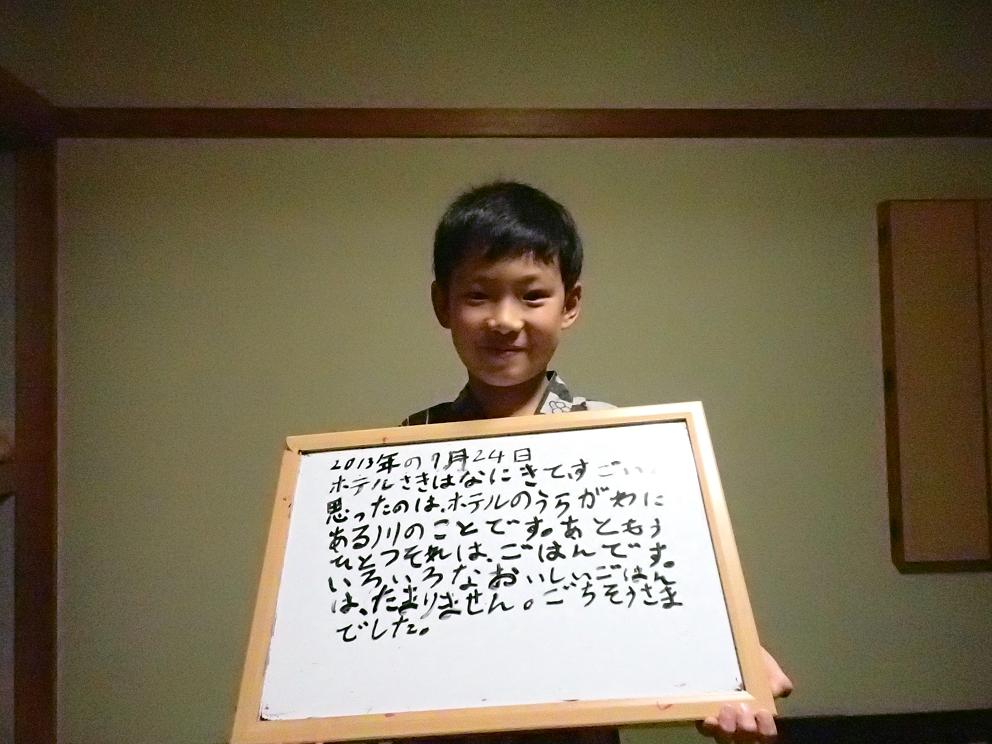 2013年の7月24日
ホテルさきはなにきてすごい
思ったのは、ホテルのうらがわに
ある川のことです。あともう
ひとつそれは、ごはんです。
いろいろなおいしいごはん
は、たまりません。ごちそうさま
でした。